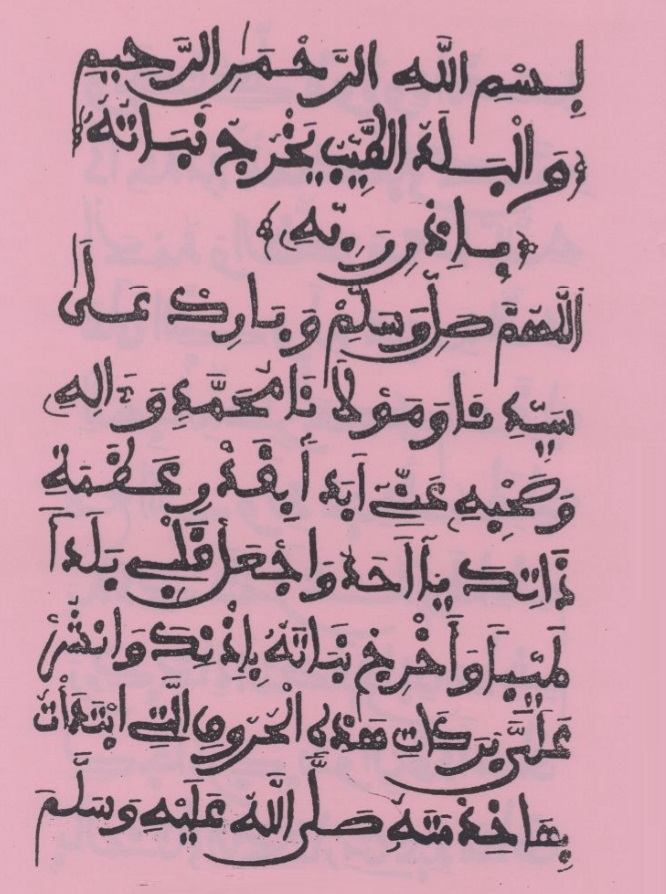 بِسْمِ اللَّهِ الرَّحْمَنِ الرَّحِيمِ
﴿وَالْبَلَدُ الطَّيِّبُ يَخْرُجُ نَبَاتُهُ﴾
﴿بِإِذْنِ رَبِّهِ﴾
اللَّهُمَّ صَلِّ وَسَلِّمْ وَبَارِكْ عَلَى
سَيِّدِنَا وَمَوْلَانَا مُحَمَّدٍ وَءَالِهِ
وَصَحْبِهِ وَعَظَمَةِ
ذَاتِكَ يَآ أَحَدُ وَاجْعَلْ قَلْبِي بَلَدًا
طَيِّبًا وَأَخْرِجْ نَبَاتَهُ بِإِذْنِكَ وَانشُرْ
عَلَيَّ بَرَكَاتِ هَذِهِ الْحُرُوفِ الَّتِي ابْتَدَأْتُ
بِهَا خِدْمَتَهُ صَلَّى اللَّهُ عَلَيْهِ وَسَلَّمَ